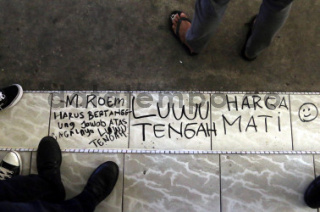 M. ROEM
HARUS BERTANGG
UNG Jawab ATAS
LUWU
TENGAH
LUWU
TENGAH
HARGA
MATI